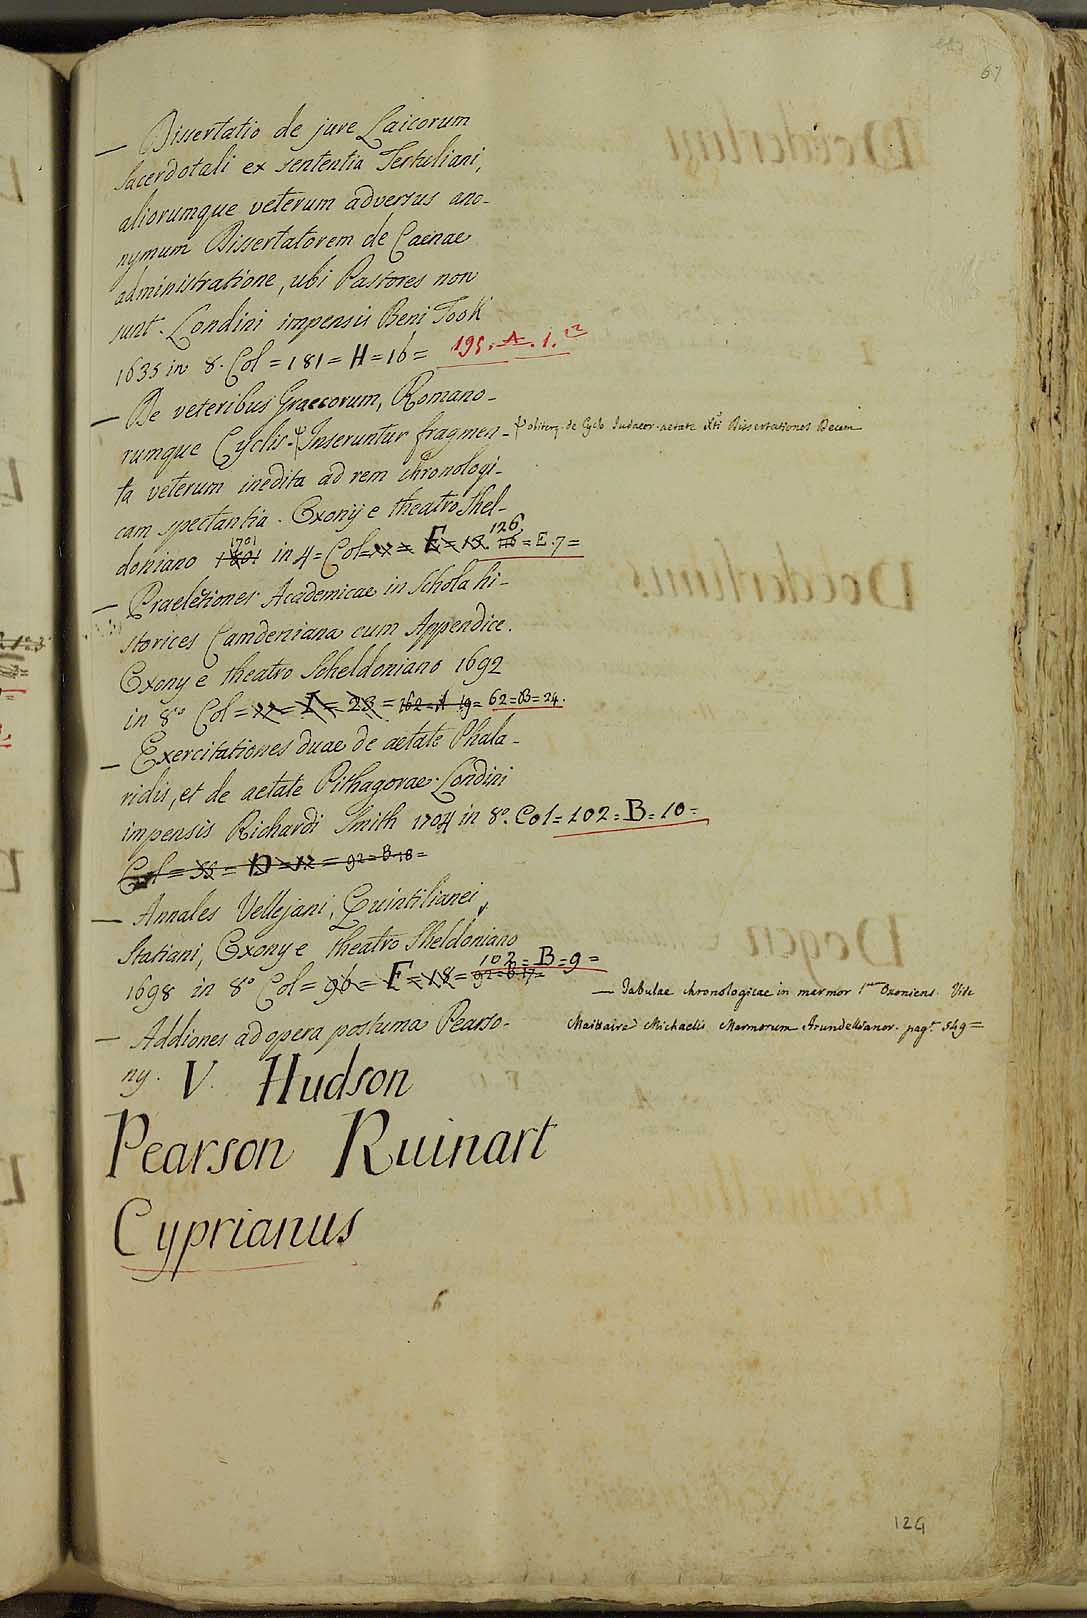 67
— Dissertatio de jure Laicorum
sacerdotali ex sententia Tertuliani,
aliorumque veterum adversus ano-
nymum Dissertatorem de Caenae
administratione, ubi Pastores non
sunt. Londini impensis Beni Took
1635 in 8. Col = 181 = H = 16 = 195. A. i. 12
— De veteribus Graecorum, Romano-
rumque Cyclis. Ψ Inseruntur fragmen-
Ψ obiterq. de Cyclo Judaeor. aetate Xti Dissertationes Decem
ta veterum inedita ad rem chronologi-
cam spectantia. Oxonij e theatro Shel-
doniano 1701 in 4 = Col = E = 13. 126 = E. 7 =
— Praelectiones Academicae in Schola hi-
storices Camdeniana cum Appendice.
Oxony e theatro Scheldoniano 1692
in 8° Col = I = 23 = 162 = A 19 = 62 = B = 24.
— Exercitationes duae de aetate Phala-
ridis, et de aetate Pithagorae. Londini
impensis Richardi Smith 1704 in 8°. Col = 102 = B = 10 =
Col = 33 = D = 12 = 92 = B. 18 =
— Annales Vellejani, Quintilianei,
Statiani, Oxony e theatro Sheldoniano
1698 in 8° Col = 96 = F = 18 = 92 = B. 17 = 102 = B = 9 =
— Tabulae chronologicae in marmor 1um Oxoniens. Vide
Maittaire Michaelis Marmorum Arundellianor. pag. 549 =
— Addiones ad opera postuma Pearso-
ny. V. Hudson
Pearson Ruinart
Cyprianus
124